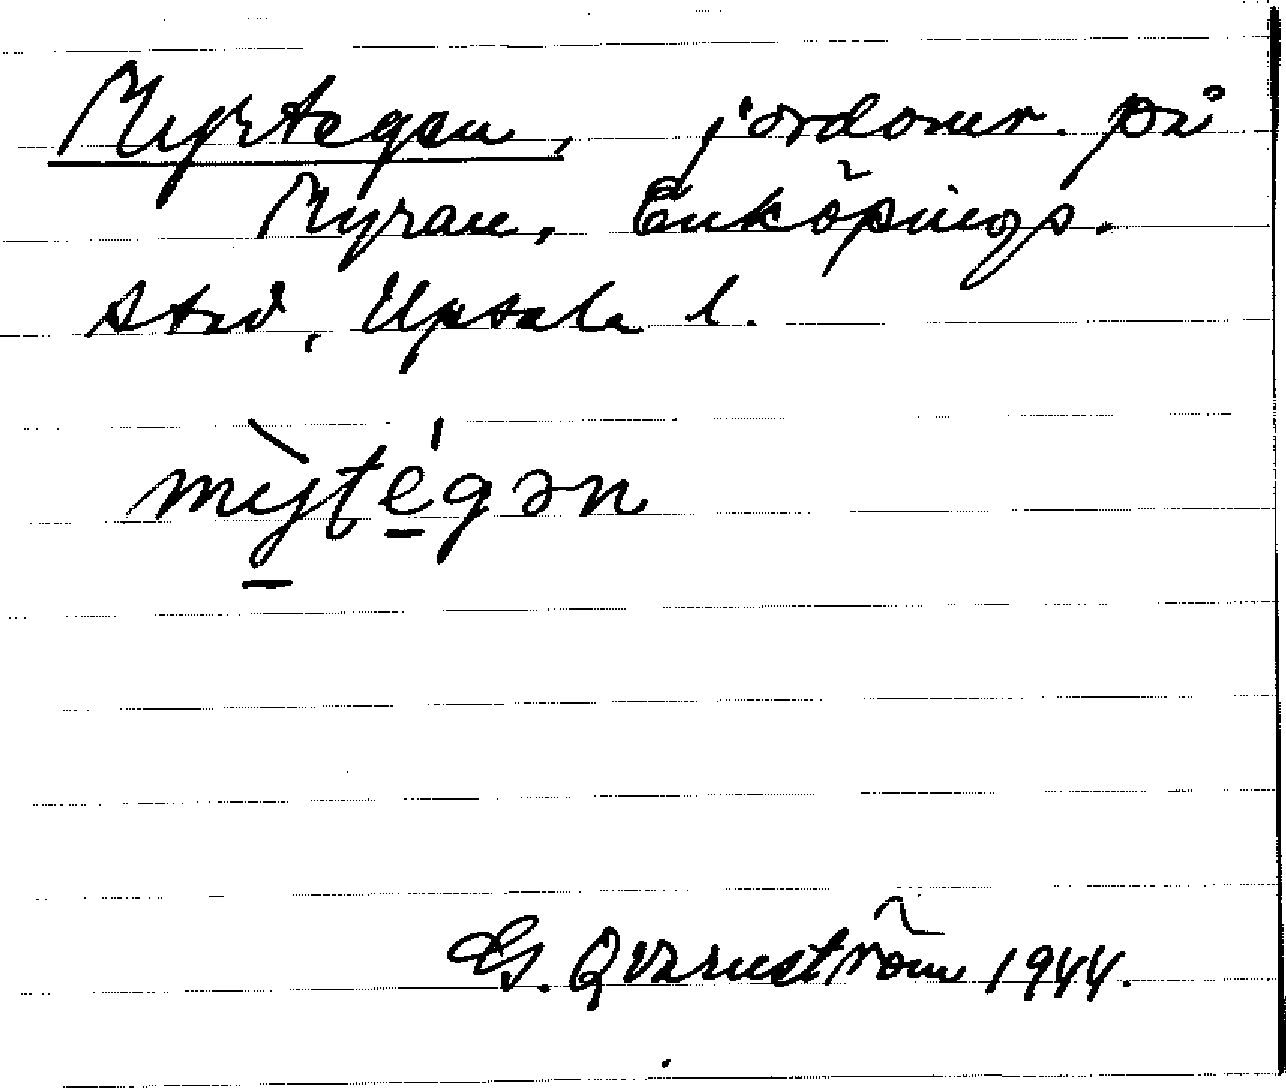 Myrtegen, jordomr. på
Myran, Enköpings.
stad, Upsala l.
mỳt́egən
G. Qvarnström 1944.